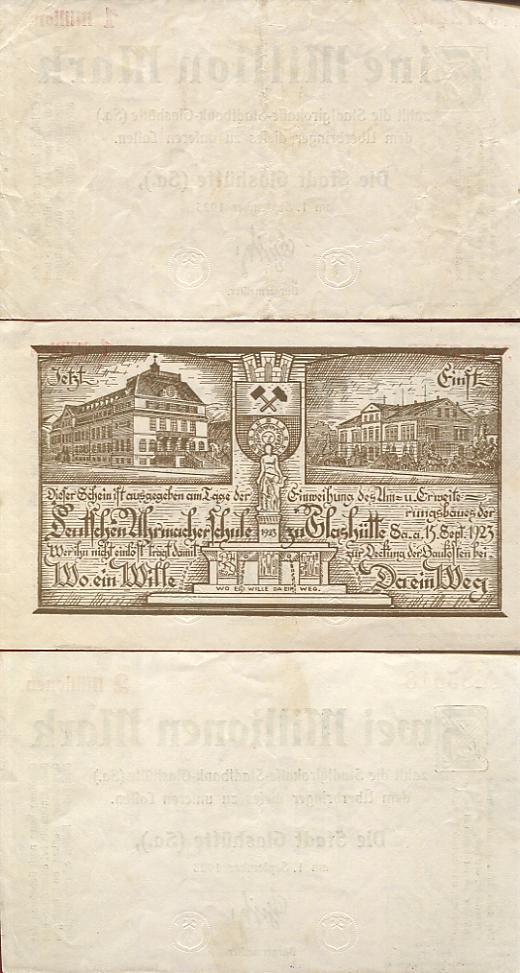 1 Million
Eine Million Mark
zahlt die Stadtgirokasse-Stadtbank-Glashütte (Sa.)
dem Überbringer dieses zu unseren Lasten.
Die Stadt Glashütte (Sa.),
am 1. September 1923
Bürgermeister.
Jetzt
Einst
Dieser Schein ist ausgegeben am Tage der Einweihung des Um- u. Erweite-
rungsbaues der
Deutschen Uhrmacherschule zu Glashütte Sa. a. 15. Sept. 1923
1923
Wer ihn nicht einlöst trägt damit zur Deckung der Baukosten bei.
Wo ein Wille Da ein Weg
WO EIN WILLE DA EIN WEG.
2 Millionen
Zwei Millionen Mark
zahlt die Stadtgirokasse-Stadtbank-Glashütte (Sa.)
dem Überbringer dieses zu unseren Lasten.
Die Stadt Glashütte (Sa.),
am 1. September 1923
Bürgermeister.